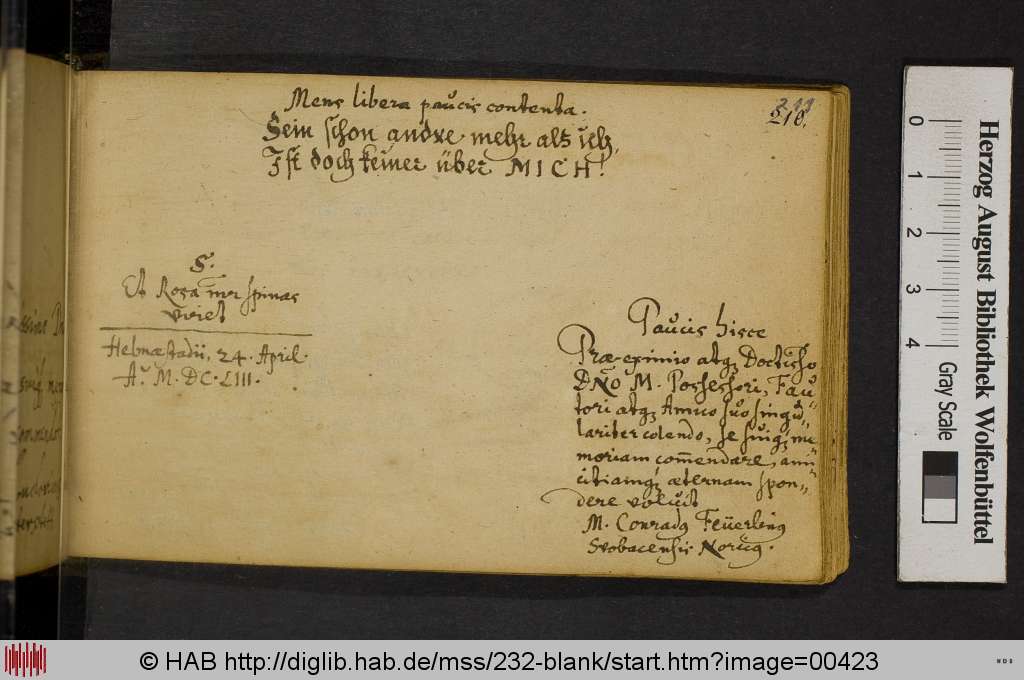 211
210.
Mens libera paucis contenta.
Sein schon andre mehr als ich,
Ist doch keiner über MICH!
S.
Et Rosa inter spinas
viret
Helmæstadii, 24. April.
Aº. M. DC. LIII.
Paucis hisce
Præ-eximio atq; Doctisso
DNo M. Possessori, Fau„
tori atq; Amico suo singu„
lariter colendo, se suiq; me„
moriam com̄endare, ami„
citiamq; æternam spon„
dere voluit
M. Conradg Feüerling
Svobacensis Noricg.
0
1
2
3
4
Gray Scale
Herzog August Bibliothek Wolfenbüttel
© HAB http://diglib.hab.de/mss/232-blank/start.htm?image=00423